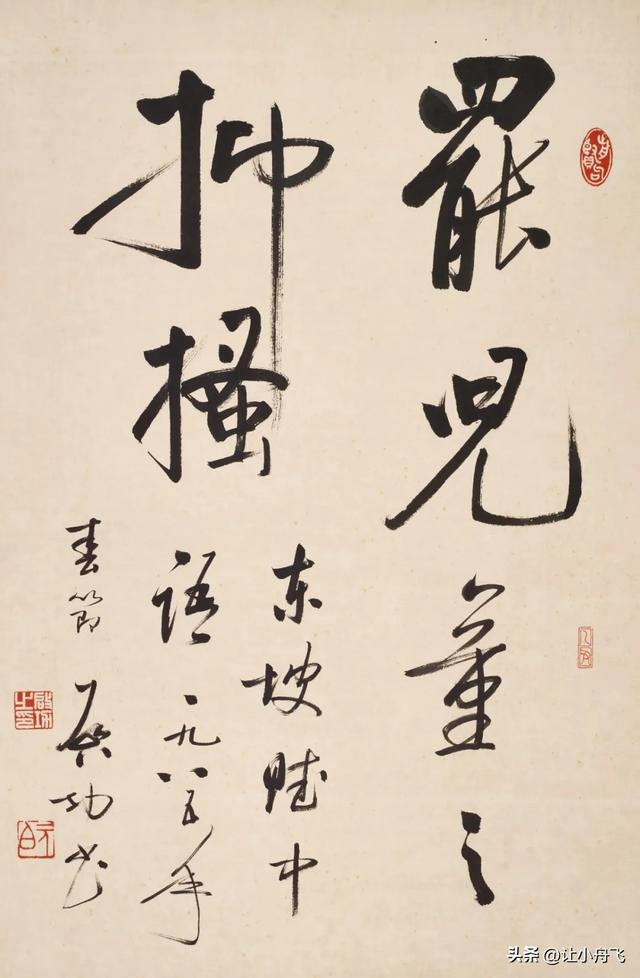 罷兒童之
抑搔
东坡赋中
语 一九八五年
春節 启功书
元白
头条 @让小舟飞